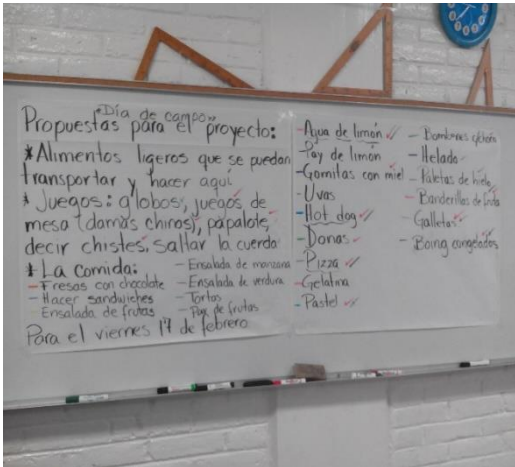 "Día de campo"
Propuestas para el proyecto:
* Alimentos ligeros que se puedan
transportar y hacer aquí
* Juegos: globos, juegos de
mesa (damas chinas), papalote,
decir chistes, saltar la cuerda
* La comida:
- Fresas con chocolate
- Hacer sandwiches
Ensalada de frutas
- Ensalada de manzana
- Ensalada de verdura
- Tortas
- Pay de frutas
Para el viernes 17 de febrero
- Agua de limón
- Pay de limón
- Gomitas con miel
- Uvas
- Hot dog
- Donas
- Pizza
- Gelatina
- Pastel
- Bombones
- Helado
- Paletas de hielo
- Banderillas de fruta
- Galletas
- Boing congelados